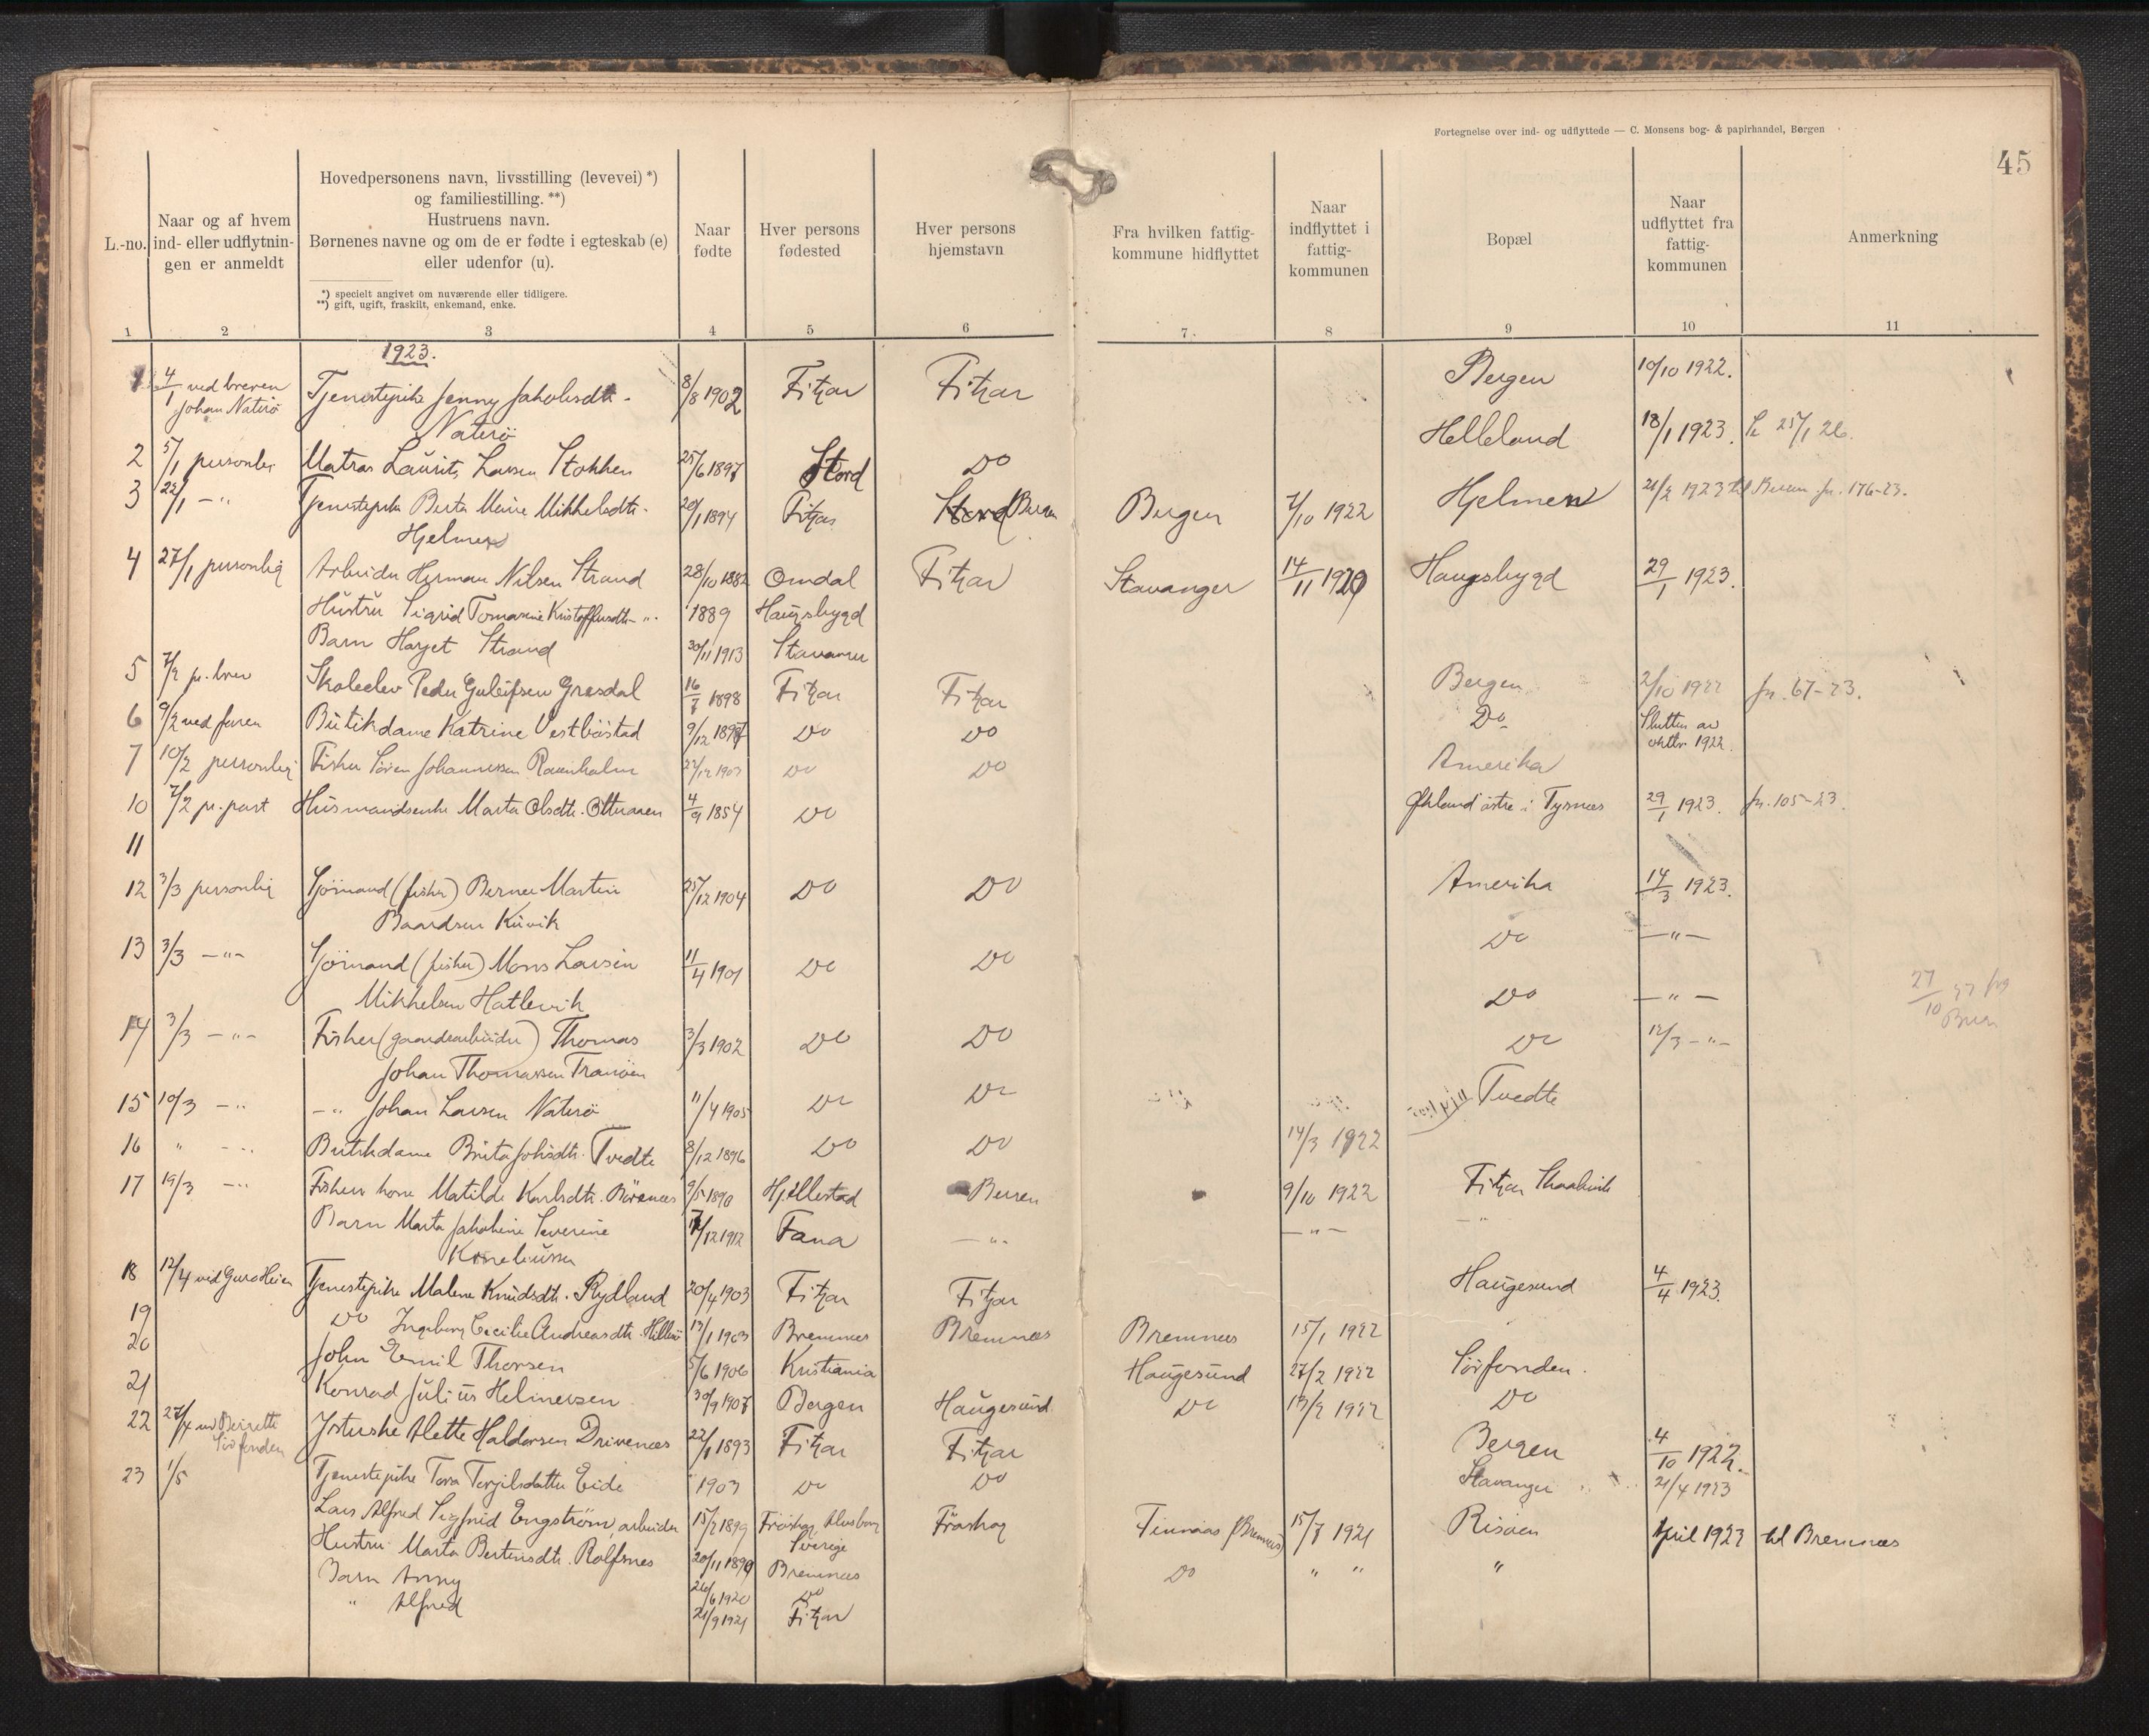 Fortegnelse over ind- og udflyttede — C. Monsens bog- & papirhandel, Bergen
45
L.-no.
Naar og af hvem
ind- eller udflytnin-
gen er anmeldt
Hovedpersonens navn, livsstilling (levevei) *)
og familiestilling. **)
Hustruens navn.
Børnenes navne og om de er fødte i egteskab (e)
eller udenfor (u).
*) specielt angivet om nuværende eller tidligere.
**) gift, ugift, fraskilt, enkemand, enke.
Naar
fødte
Hver persons
fødested
Hver persons
hjemstavn
Fra hvilken fattig-
kommune hidflyttet
Naar
indflyttet i
fattig-
kommunen
Bopæl
Naar
udflyttet fra
fattig-
kommunen
Anmerkning
1 2 3 4 5 6 7 8 9 10 11
1923.
1 4/1 ved broren Tjenestepike Jenny Jakobsdtr. 8/8 1902 Fitjar Fitjar Bergen 10/10 1922.
Johan Naterö Naterö
2 5/1 personlig Matros Laurits Larsen Stokken 25/6 1897 Stord Do Helleland 18/1 1923. 25/1 26.
3 22/1 —"— Tjenestepike Berta Marie Mikkelsdtr. 20/1 1894 Fitjar Stord Bergen Bergen 7/10 1922 Hjelmen 21/2 1923 til Bergen jr. 176-23.
Hjelmen
4 27/1 personlig Arbeider Herman Nilsen Strand 28/10 1882 Omdal Fitjar Stavanger 14/11 1920 Haugsbygd 29/1 1923.
Hustru Sigrid Tomasine Kristoffersdtr. —"— 1889 Haugsbygd
Barn Harjet Strand 30/11 1913 Stavanger
5 7/2 pr. brev Skoleelev Peder Guleifsen Gresdal 16/7 1898 Fitjar Fitjar Bergen 2/10 1922 jr. 67-23.
6 9/2 ved faren Butikdame Katrine Vestbøstad 9/12 1897 Do Do Do Slutten av
oktbr. 1922.
7 10/2 personlig Fisker Søren Johannessen Ravnholm 22/12 1903 Do Do Amerika
10 7/2 pr. post Husmandsenke Marta Olsdtr. Otteraaen 4/9 1854 Do Økland østre i Tysnes 29/1 1923. jr. 105-23.
11
12 3/3 personlig Sjømand (fisker) Berner Martin 25/12 1904 Do Do Amerika 14/3 1923.
Baardsen Kuvik
13 3/3 —"— Sjømand (fisker) Mons Larsen 11/4 1901 Do Do Do —"—
Mikkelsen Hatlevik
14 3/3 —"— Fisker (gaardsarbeider) Thomas 3/3 1902 Do Do Do —"—
Johan Thomassen Tranøen
27/10
15 10/3 —"— —"— Johan Larsen Naterö 11/4 1905 Do Do Do 12/3 —"—
16 " —"— Butikdame Brita Johsdtr. Tvedte 8/12 1896 Do Do 14/3 1922 Tvedte
17 19/3 —"— Fiskers kone Matilde Karlsdtr. Börenes 9/5 1890 Hjellestad Bergen 9/10 1922 Fitjar Skaalevik
Barn Marta Jakobine Severine 7/12 1912 Fana —"— —"— —"—
Korneliussen
18 12/4 ved Guro Heien Tjenestepike Malene Knudsdtr. Rydland 20/4 1903 Fitjar Fitjar Haugesund 4/4 1923.
19 Do Ingeborg Cecilie Andreasdtr. Hillesø 13/1 1903 Bremnes Bremnes Bremnes 15/1 1922
20 John Emil Thorsen 5/6 1906 Kristiania Haugesund 27/2 1922 Sörfonden.
21 Konrad Julius Helmersen 30/9 1907 Bergen Haugesund Do 13/2 1922 Do
22 27/4 ved Bergette Jsterske Alette Haldorsen Drivenes 22/1 1893 Fitjar Fitjar Bergen 4/10 1922.
Sörfonden
23 1/5 Tjenestepike Tora Torgilsdatter Eide 1903 Do Do Stavanger 21/4 1923
Lars Alfred Sigfrid Engström, arbeider 15/2 1899 Alvsborg Sverige Finnaas (Bremnes) 15/7 1921 Risøen April 1923 til Bremnes
Hustru Marta Bertinsdtr. Rolfsnes 20/11 1899 Bremnes Do " " "
Barn Anny 26/6 1920 Do
" Alfred 21/9 1921 Fitjar